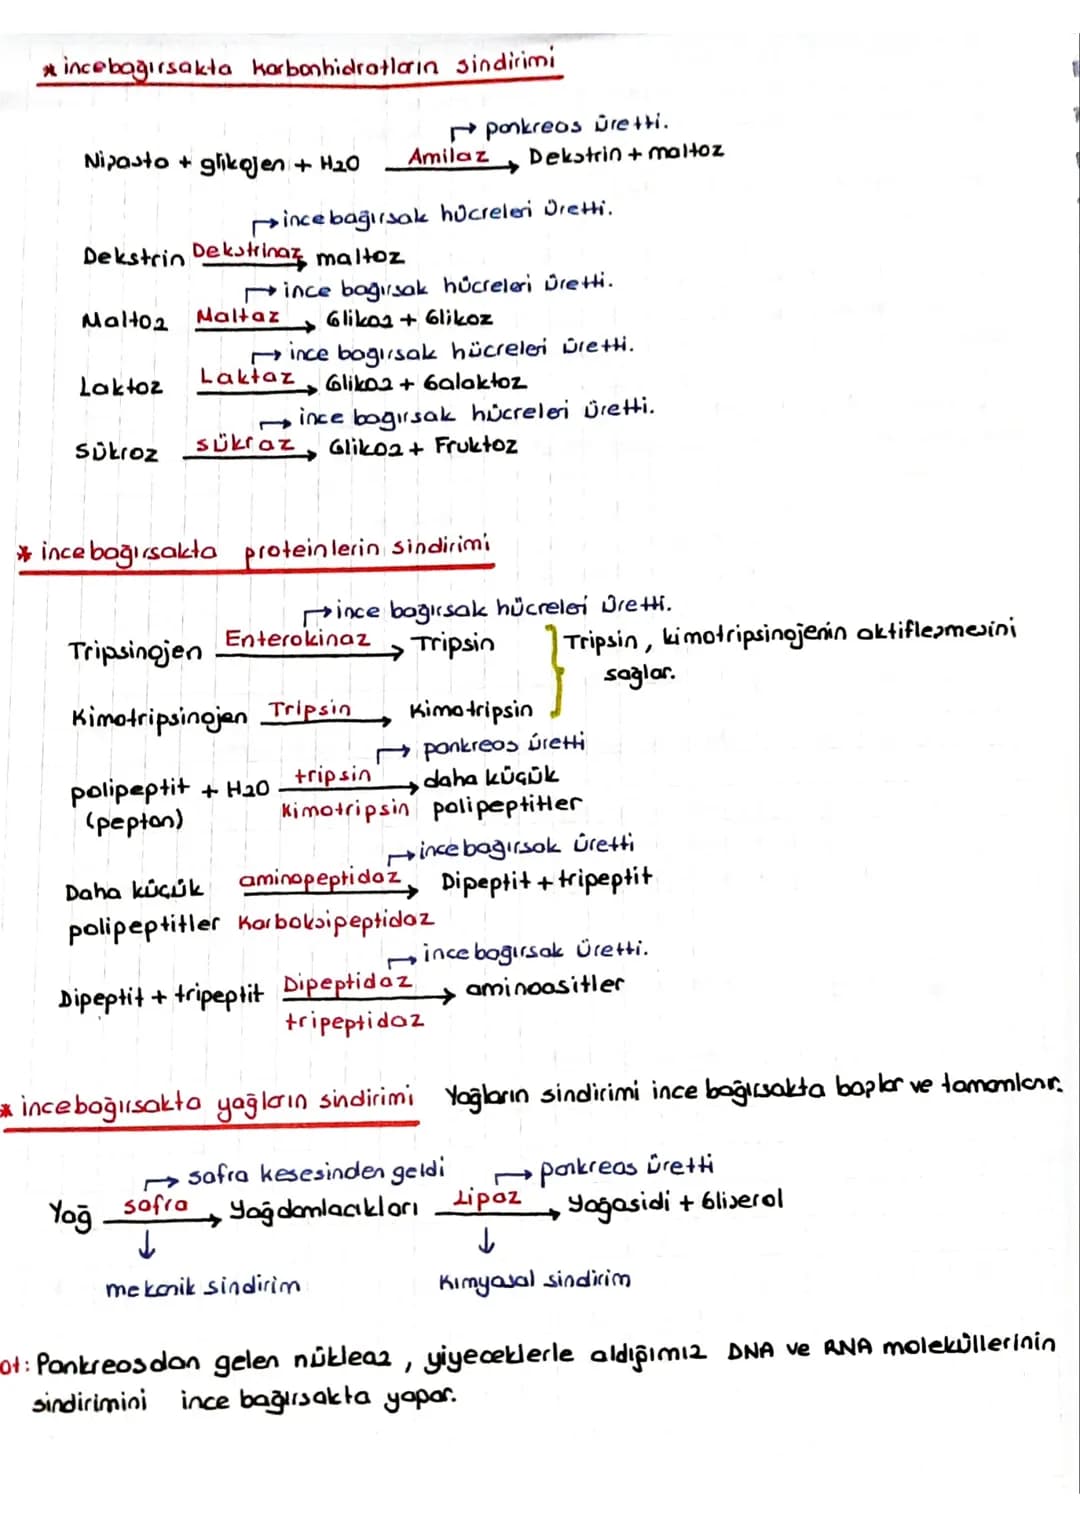 * incebağırsakta karbonhidratların sindirimi
→ pankreas üretti.
Nişasta + glikojen + H2O Amilaz → Dekstrin + maltoz
→ ince bağırsak hücreleri üretti.
Dekstrin Dekstrinaz → maltoz
→ ince bağırsak hücreleri üretti.
Maltoz Maltaz → Glikoz + Glikoz
→ ince bağırsak hücreleri üretti.
Laktoz Laktaz → Glikoz + Galaktoz
→ ince bağırsak hücreleri üretti.
Sükroz sükraz → Glikoz + Fruktoz
* ince bağırsakta proteinlerin sindirimi
→ ince bağırsak hücreleri üretti.
Tripsinojen Enterokinaz → Tripsin } Tripsin, kimotripsinojenin aktifleşmesini
sağlar.
Kimotripsinojen Tripsin → Kimotripsin
→ pankreas üretti
polipeptit + H2O tripsin → daha küçük
(pepton) kimotripsin polipeptitler
→ ince bağırsak üretti
Daha küçük aminopeptidaz → Dipeptit + tripeptit
polipeptitler Karboksipeptidaz
→ ince bağırsak üretti.
Dipeptit + tripeptit Dipeptidaz → aminoasitler
tripeptidaz
* incebağırsakta yağların sindirimi Yağların sindirimi ince bağırsakta başlar ve tamamlanır.
→ safra kesesinden geldi → pankreas üretti
Yağ safra → Yağ damlacıkları Lipaz → Yağasidi + Gliserol
↓ ↓
mekanik sindirim Kimyasal sindirim
ot: Pankreasdan gelen nükleaz, yiyeceklerle aldığımız DNA ve RNA moleküllerinin
sindirimini ince bağırsakta yapar.